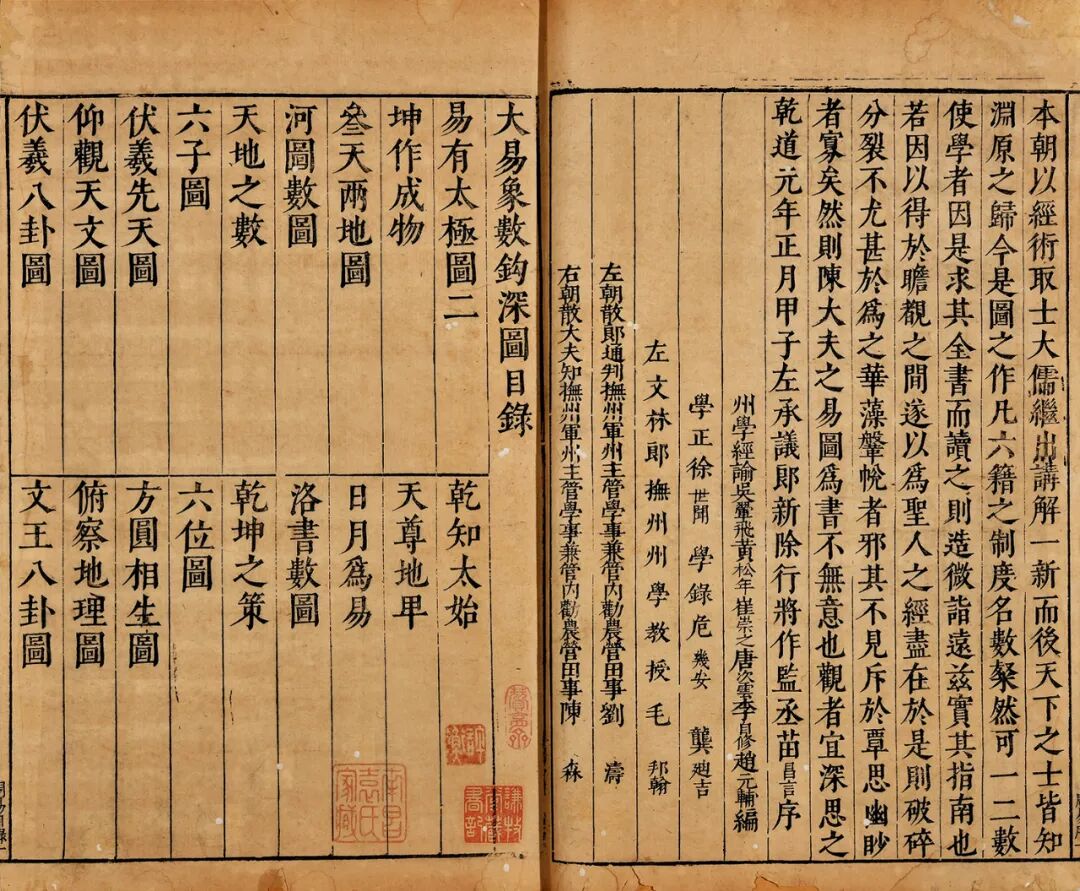 本朝以經術取士大儒繼出講解一新而後天下之士皆知
淵原之歸今是圖之作凡六籍之制度名數粲然可一二數
使學者因是求其全書而讀之則造微詣遠兹實其指南也
若因以得於瞻覩之間遂以爲聖人之經盡在於是則破碎
分裂不尤甚於爲之華藻鞶帨者邪其不見斥於覃思幽眇
者寡矣然則陳大夫之易圖爲書不無意也觀者宜深思之
乾道元年正月甲子左承議郎新除行將作監丞苗昌言序
州學經諭吳翬飛黄松年崔崇之唐次雲李自修趙元輔編
學正徐世聞 學錄危幾安 龔廸吉
左文林郎撫州州學教授毛邦翰
左朝散郎通判撫州軍州主管學事兼管内勸農營田事劉濤
右朝散大夫知撫州軍州主管學事兼管内勸農營田事陳森
大易象數鈎深圖目錄
易有太極圖二 乾知太始
坤作成物 天尊地卑
叄天兩地圖 日月爲易
河圖數圖 洛書數圖
天地之數 乾坤之策
六子圖 六位圖
伏羲先天圖 方圓相生圖
仰觀天文圖 俯察地理圖
伏羲八卦圖 文王八卦圖
南昌袁氏家藏
謙牧堂藏書記